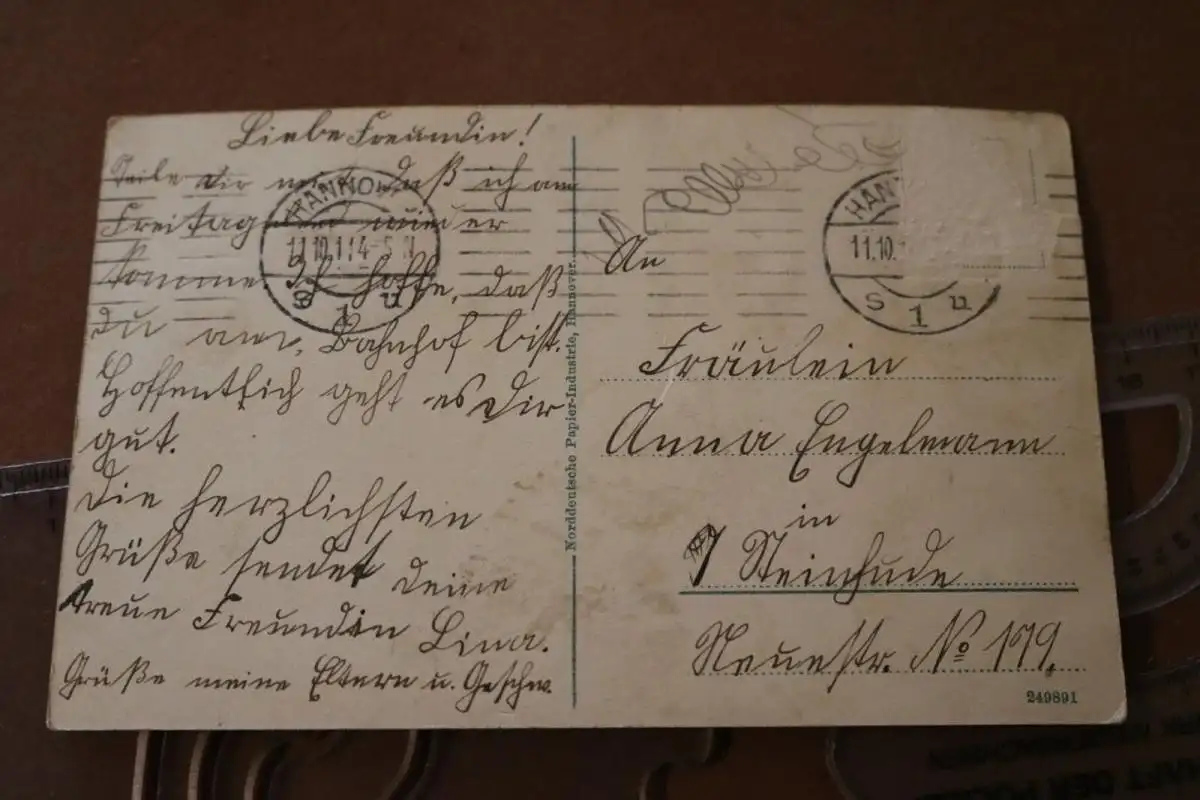 Liebe Freundin!
Teile dir mit, daß ich am
Freitag wieder
komme. Ich hoffe, daß
du am Bahnhof bist.
Hoffentlich geht es dir
gut.
Die herzlichsten
Grüße sendet deine
treue Freundin Lina.
Grüße meine Eltern u. Geschw.
HANNOV
11.10.11 4-5 N
S 1 u
Norddeutsche Papier-Industrie, Hannover.
HAN
11.10.
S 1 u
An
Fräulein
Anna Engelmann
in
Steinhude
Neuestr. No 179.
249891